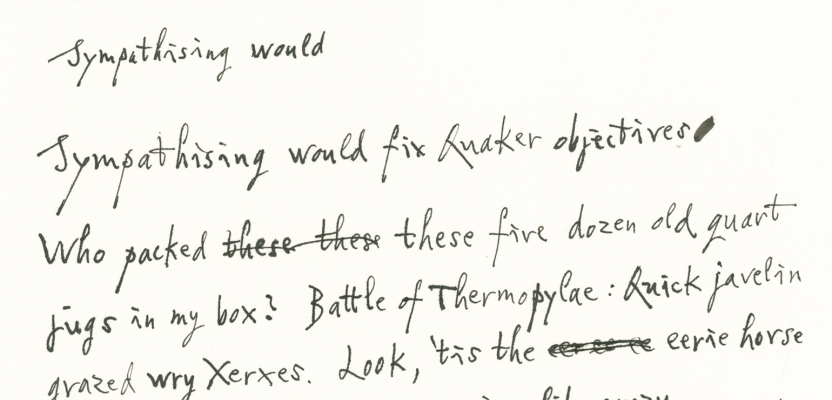 Sympathising would
Sympathising would fix Quaker objectives
Who packed these these these five dozen old quart
jugs in my box? Battle of Thermopylae: Quick javelin
grazed wry Xerxes. Look, 'tis the eerie horse